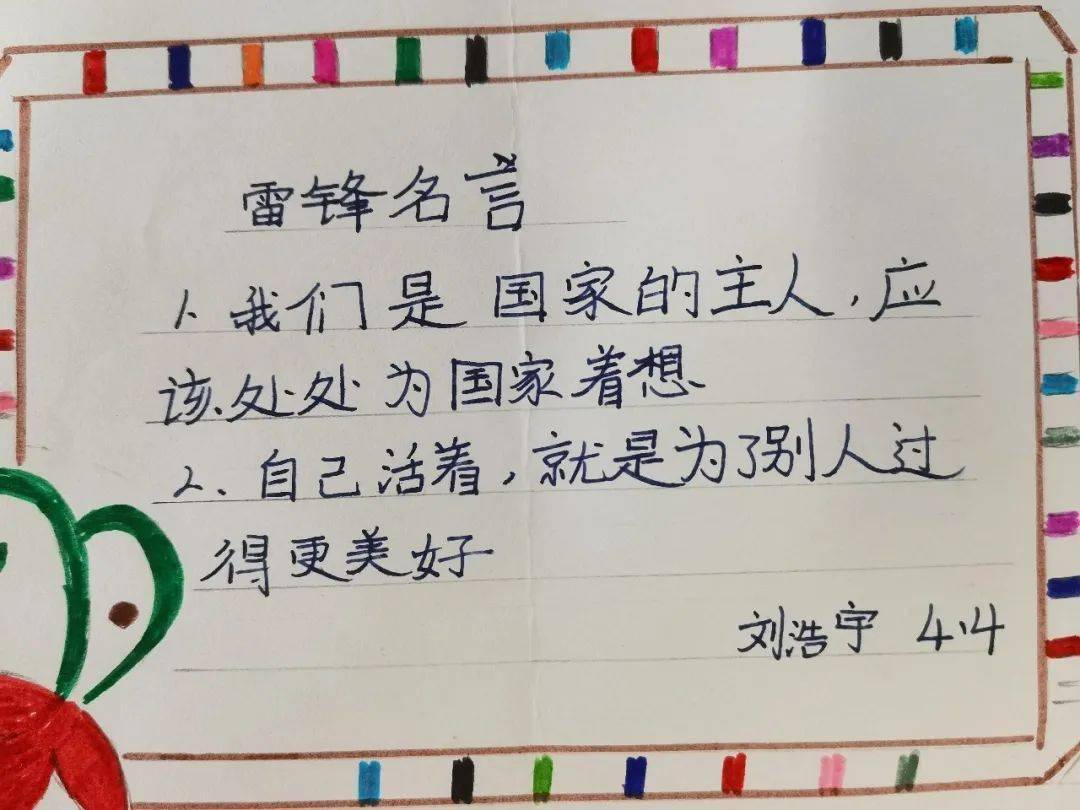 雷锋名言
1.我们是国家的主人,应
该处处为国家着想
2.自己活着,就是为了别人过
得更美好
刘浩宇 4.4